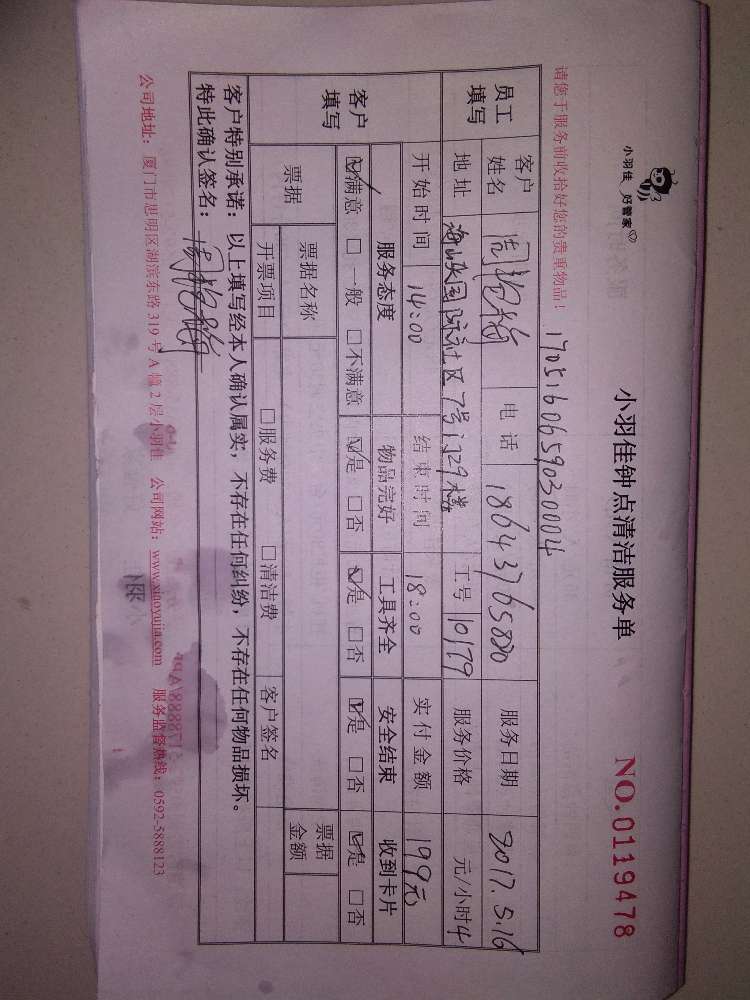 小羽佳 好管家
小羽佳钟点清洁服务单
NO.0119478
请您于服务前收拾好您的贵重物品！
17051606590300004
员工填写
客户姓名 电话 18643765880 服务日期 2017.5.16
地址 国际社区7号1329楼 工号 10179 服务价格 元/小时 4
开始时间 14:00 结束时间 18:00 实付金额 199元
客户填写
服务态度 物品完好 工具齐全 安全结束 收到卡片
☑满意 □一般 □不满意 ☑是 □否 ☑是 □否 ☑是 □否 ☑是 □否
票据 票据名称 票据金额
开票项目 □服务费 □清洁费 客户签名
客户特别承诺：以上填写经本人确认属实，不存在任何纠纷，不存在任何物品损坏。
特此确认签名：
公司地址：厦门市思明区湖滨东路319号A幢2层小羽佳 公司网站：www.xiaoyujia.com 服务监督热线：0592-5888123